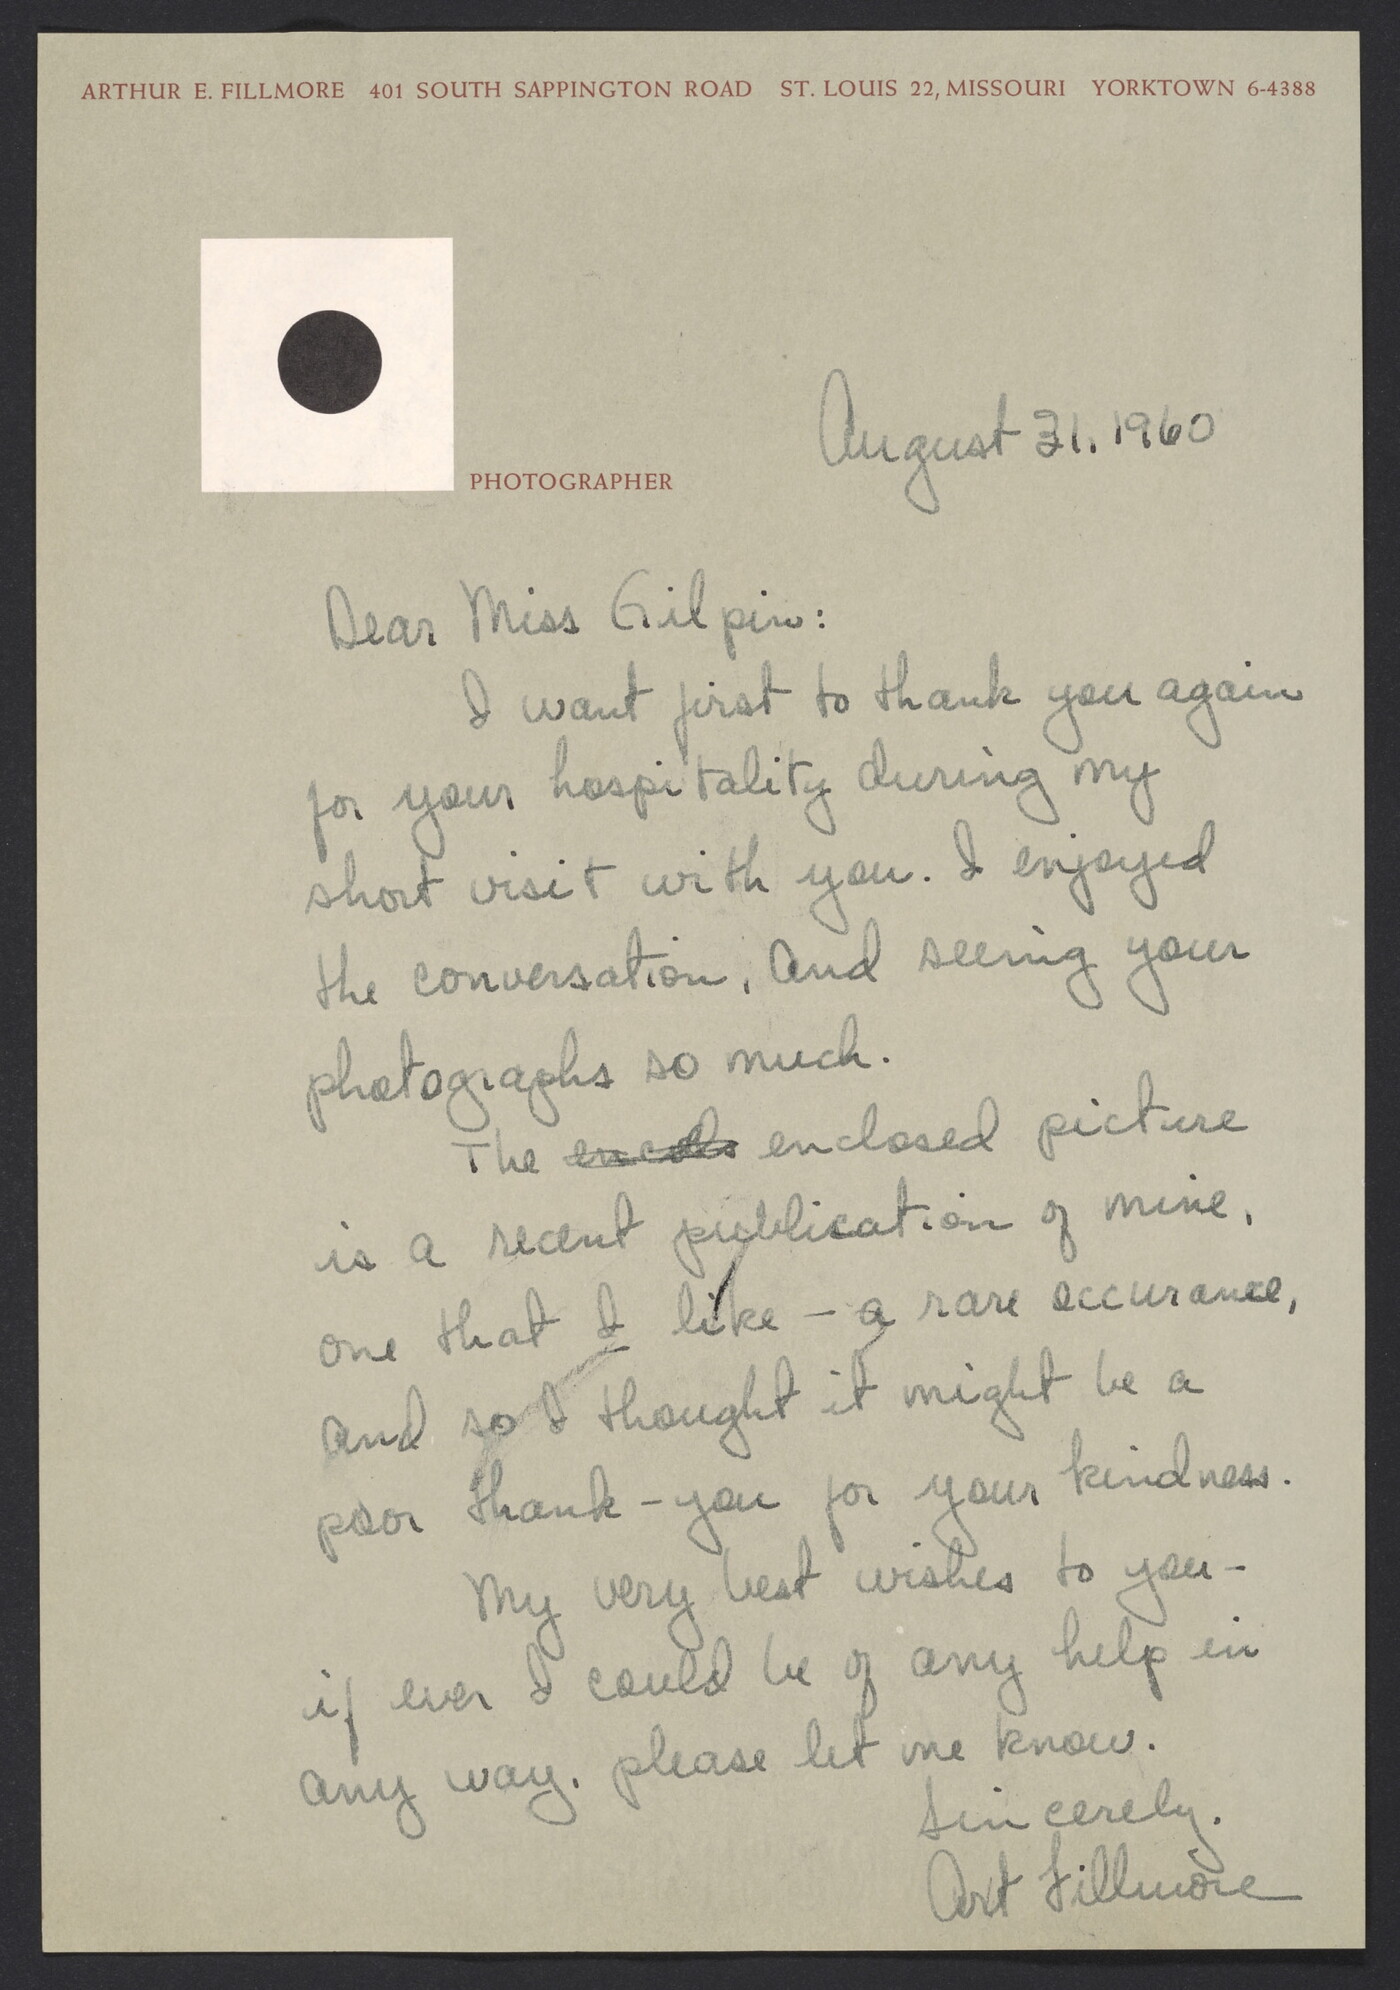 ARTHUR E. FILLMORE 401 SOUTH SAPPINGTON ROAD ST. LOUIS 22, MISSOURI YORKTOWN 6-4388
PHOTOGRAPHER
August 31, 1960
Dear Miss Gilpin:
I want first to thank you again
for your hospitality during my
short visit with you. I enjoyed
the conversation, and seeing your
photographs so much.
The enclosed picture
is a recent publication of mine,
one that I like – a rare occurance,
and so I thought it might be a
poor thank-you for your kindness.
My very best wishes to you-
if ever I could be of any help in
any way, please let me know.
Sincerely,
Art Fillmore